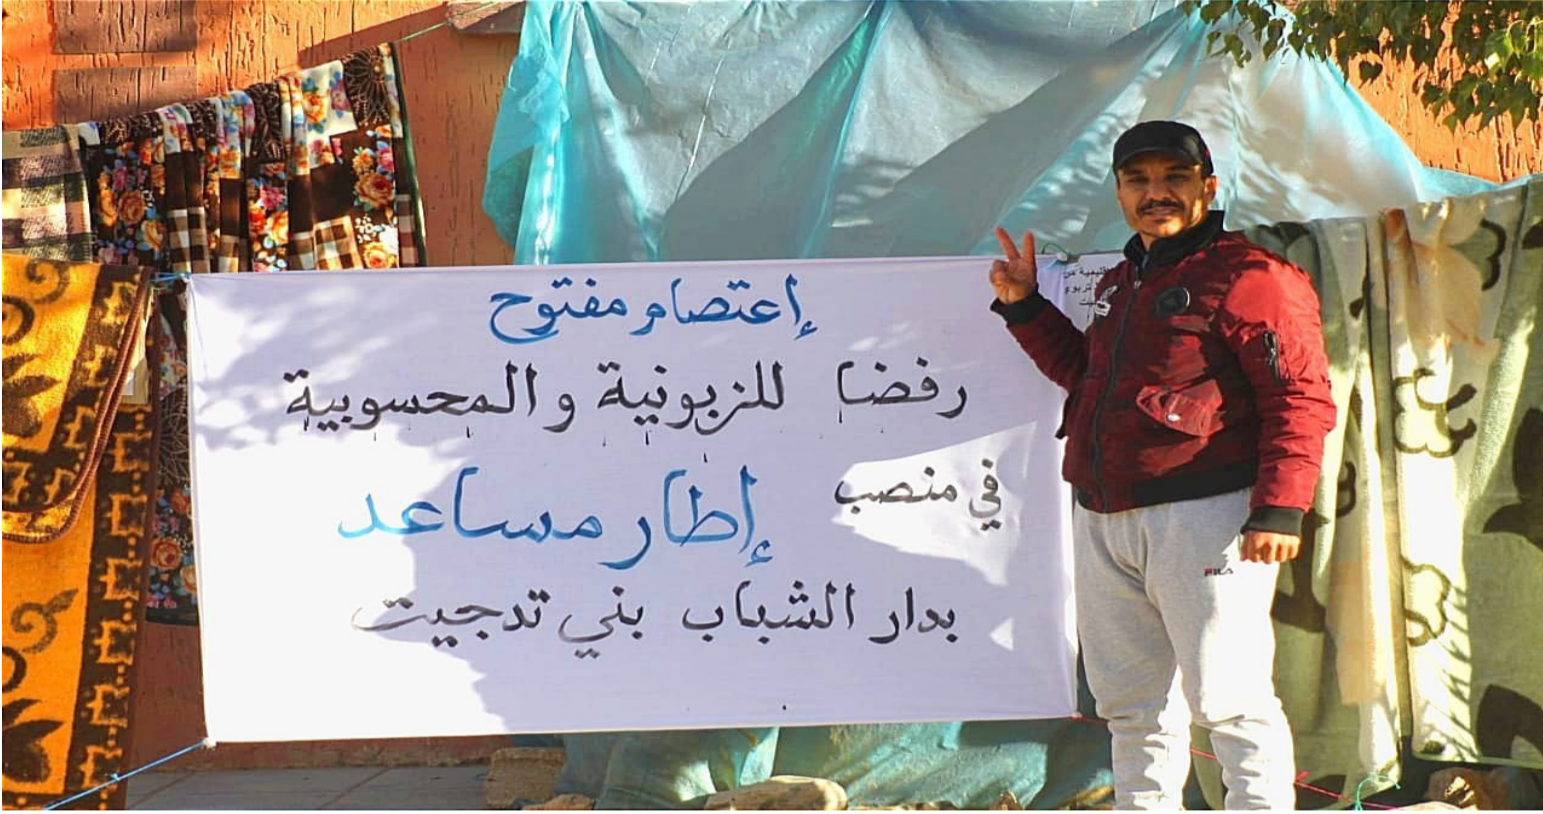 إعتصام مفتوح
رفضا للزبونية والمحسوبية
في منصب إطار مساعد
بدار الشباب بني تدجيت
FILA